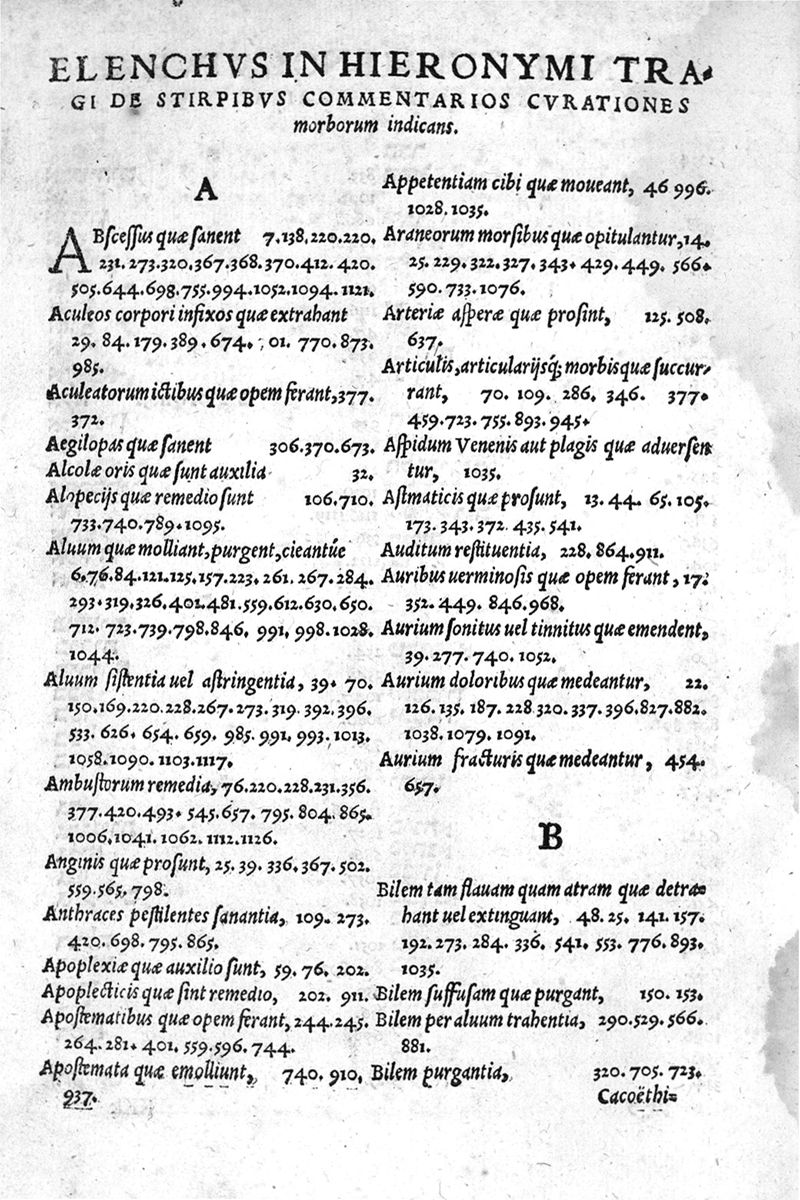 ELENCHVS IN HIERONYMI TRA-
GI DE STIRPIBVS COMMENTARIOS CVRATIONES
morborum indicans.
A
ABſceſſus quæ ſanent 7.138.220.220.
231. 273.320.367.368.370.412. 420.
505.644.698.755.994.1052.1094. 1121.
Aculeos corpori infixos quæ extrahant
29. 84. 179. 389. 674. 01. 770. 873.
985.
Aculeatorum ictibus quæ opem ferant, 377.
372.
Aegilopas quæ ſanent 306.370.673.
Alcolæ oris quæ ſunt auxilia 32.
Alopecijs quæ remedio ſunt 106.710.
733.740.789.1095.
Aluum quæ molliant, purgent, cieantúe
6.76.84.121.125.157.223. 261. 267. 284.
293.319.326.401.481.559.612.630.650.
712. 723.739.798.846. 991. 998.1028.
1044.
Aluum ſiſtentia uel aſtringentia, 39. 70.
150.169.220.228.267.273.319. 392.396.
533. 626. 654. 659. 985. 991. 993. 1013.
1058.1090. 1103.1117.
Ambuſtorum remedia, 76.220.228.231.356.
377.420.493. 545.657. 795. 804. 865.
1006.1041. 1062. 1112.1126.
Anginis quæ proſunt, 25. 39. 336.367. 502.
559.565. 798.
Anthraces peſtilentes ſanantia, 109. 273.
420. 698. 795. 865.
Apoplexiæ quæ auxilio ſunt, 59. 76. 202.
Apoplecticis quæ ſint remedio, 202. 911.
Apoſtematibus quæ opem ferant, 244.245.
264. 281. 401. 559.596. 744.
Apoſtemata quæ emolliunt, 740. 910.
937.
Appetentiam cibi quæ moueant, 46 996.
1028. 1035.
Araneorum morſibus quæ opitulantur, 14.
25. 229. 322. 327. 343. 429. 449. 566.
590. 733. 1076.
Arteriæ aſperæ quæ proſint, 125. 508.
637.
Articulis, articularijsq; morbis quæ ſuccur-
rant, 70. 109. 286. 346. 377.
459.723. 755. 893. 945.
Aſpidum Venenis aut plagis quæ aduerſen
tur, 1035.
Aſtmaticis quæ proſunt, 13. 44. 65. 105.
173. 343. 372. 435. 541.
Auditum reſtituentia, 228. 864.911.
Auribus uerminoſis quæ opem ferant, 17.
352. 449. 846.968.
Aurium ſonitus uel tinnitus quæ emendent,
39. 277. 740. 1052.
Aurium doloribus quæ medeantur, 22.
126. 135. 187. 228.320. 337. 396.827.882.
1038. 1079. 1091.
Aurium fracturis quæ medeantur, 454.
657.
B
Bilem tam flauam quam atram quæ detra-
hant uel extinguant, 48. 25. 141. 157.
192. 273. 284. 336. 541. 553. 776. 893.
1035.
Bilem ſuffuſam quæ purgant, 150. 153.
Bilem per aluum trahentia, 290.529. 566.
881.
Bilem purgantia, 320. 705. 723.
Cacoëthi-